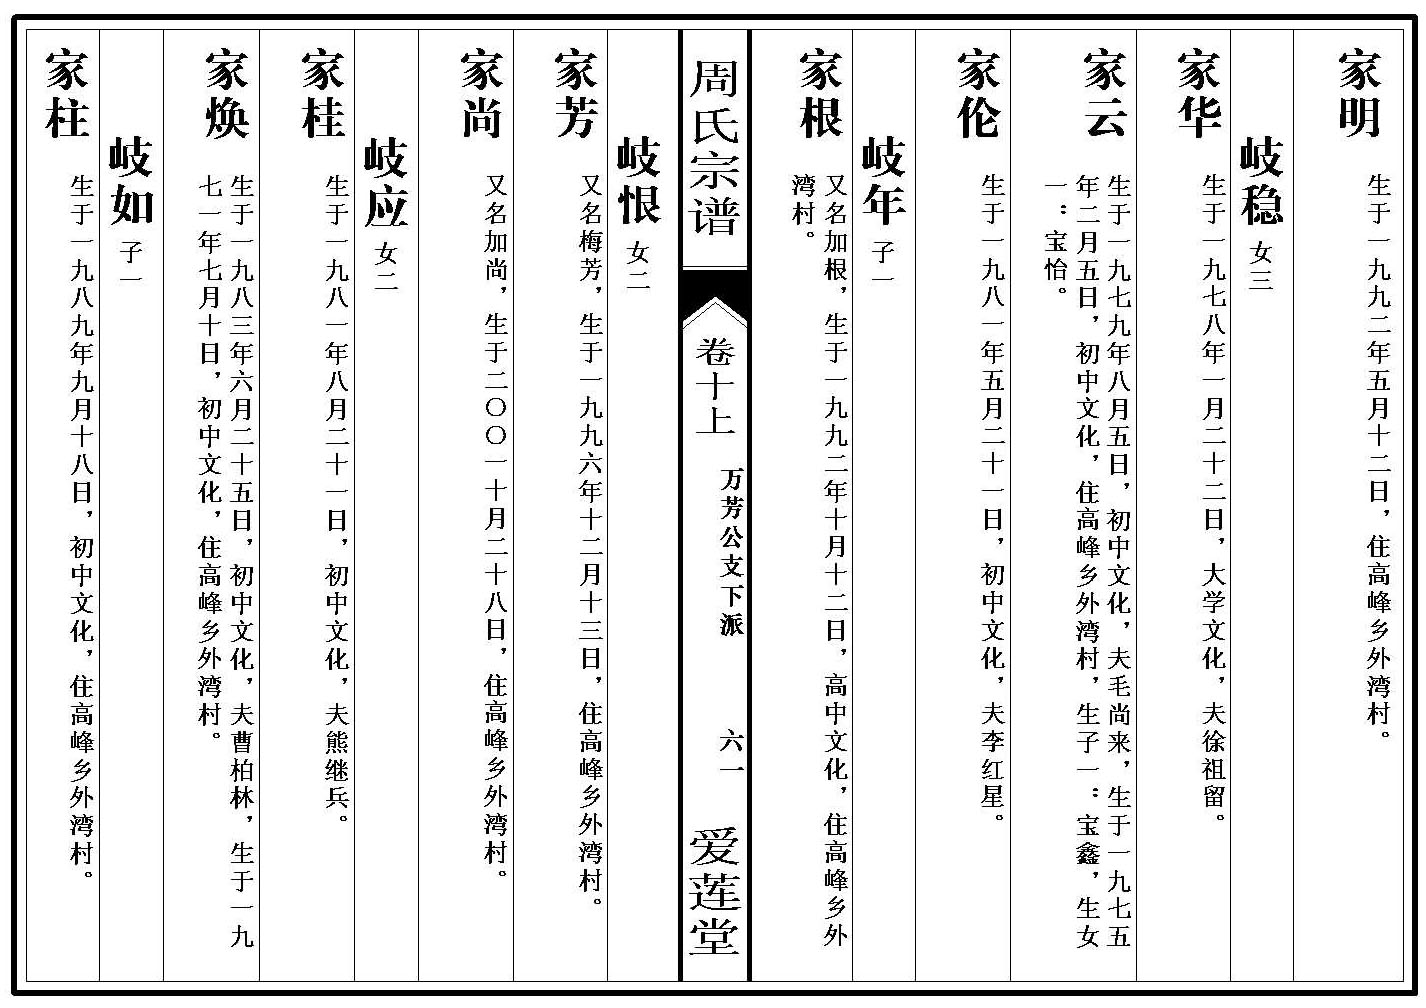 家明
生于一九九二年五月十二日，住高峰乡外湾村。
岐稳 女三
家华
生于一九七八年一月二十二日，大学文化，夫徐祖留。
家云
生于一九七九年八月五日，初中文化，夫毛尚来，生于一九七五
年二月五日，初中文化，住高峰乡外湾村，生子一：宝鑫，生女
一：宝怡。
家伦
生于一九八一年五月二十一日，初中文化，夫李红星。
岐年 子一
家根
又名加根，生于一九九二年十月十二日，高中文化，住高峰乡外
湾村。
周氏宗谱
卷十上
万芳公支下派
六一
爱莲堂
岐恨 女二
家芳
又名梅芳，生于一九九六年十二月十三日，住高峰乡外湾村。
家尚
又名加尚，生于二〇〇一十月二十八日，住高峰乡外湾村。
岐应 女二
家桂
生于一九八一年八月二十一日，初中文化，夫熊继兵。
家焕
生于一九八三年六月二十五日，初中文化，夫曹柏林，生于一九
七一年七月十日，初中文化，住高峰乡外湾村。
岐如 子一
家柱
生于一九八九年九月十八日，初中文化，住高峰乡外湾村。